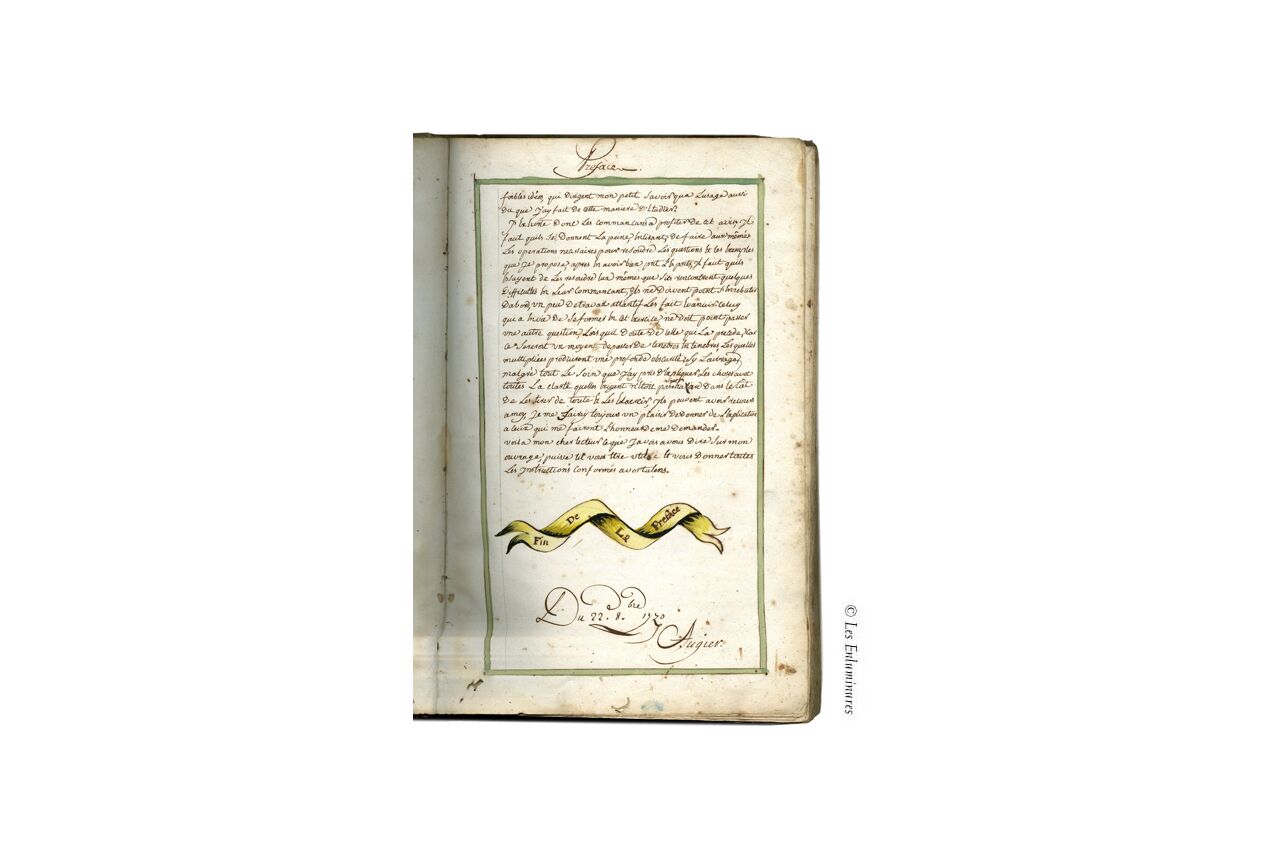 Preface.
foibles idées qui dirigent mon petit savoir que lusage aussi
du que j'ay fait de cette maniere d'étudier.
dont les commançans a profiter de cet avis, Il
faut quils se donnent la peine, de faire eux mêmes
Les operations necessaires pour resoudre Les questions & les exemples
que Je propose, apres en avoir bien prit L'esprits, Il faut quils
éssayent de Les resoudre eux mêmes que sils rencontrent quelques
difficultés en Leur commancant, ils ne doivent point
Dabord, un peu de travail attantif Les fait evanuir. Celuy
qui a envie de se former en cet exercice ne doit point passer
une autre question, Lors quil doute de celle qui La precede, Car
ce seroit un moyent de passer de tenebres en tenebres Lesquelles
multipliées produiront une profonde obscurité. Sy
malgré tout Le soin que J'ay pris d'expliquer Les choses avec
toutes La clarté quelles exigent n'étoit pas dans le Cas
De Les tirer de toute & Les eclaircir, ils peuvent avoir recours
a moy, Je me fairay toujours un plaisir de donner de L'aplication
a ceux qui me fairont L'honneur de me demander.
voila mon cher lecteur ce que J'avois a vous dire sur mon
ouvrage, puisse til vous être utile & vous donner toutes
Les Instructions conformés a vos talens.
Fin De La Preface
Du 22. 8.bre 1770
Augier.
© Les Enluminures